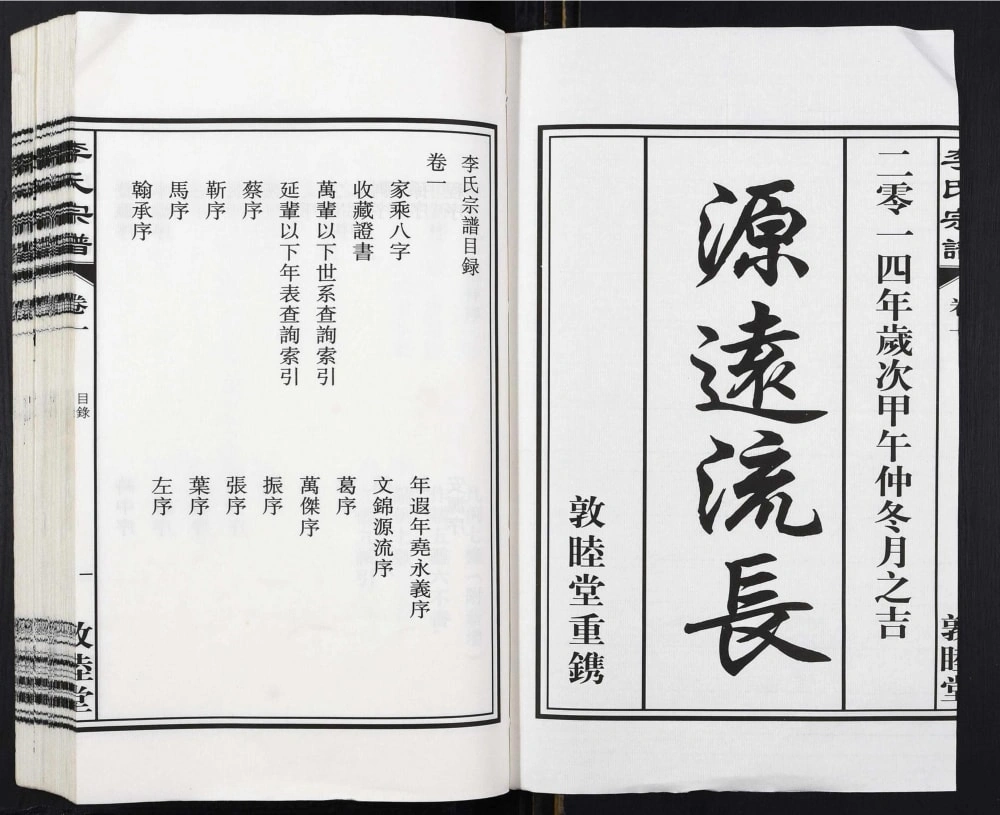 李氏宗譜
卷一
敦睦堂
二零一四年歲次甲午仲冬月之吉
源遠流長
敦睦堂重鐫
李氏宗譜目録
卷一
家乘八字
收藏證書
萬輩以下世系查詢索引
延輩以下年表查詢索引
蔡序
靳序
馬序
翰承序
年遐年堯永義序
文錦源流序
葛序
萬傑序
振序
張序
葉序
左序
李氏宗譜
卷一
目錄
一
敦睦堂